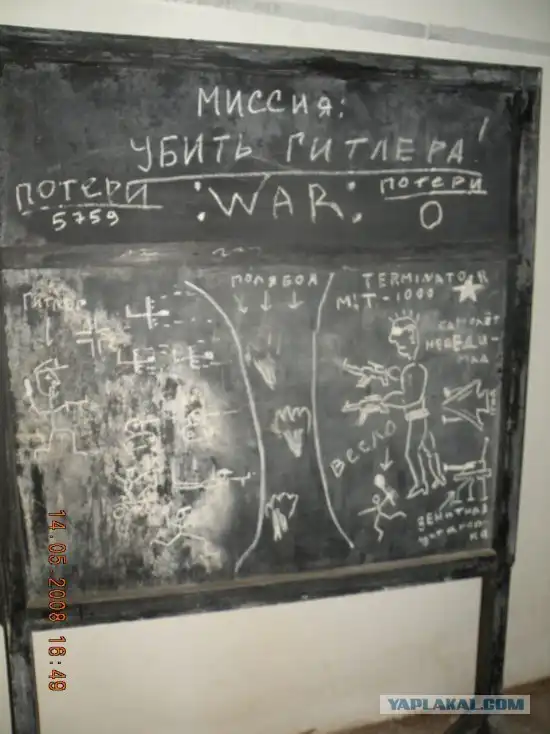 МИССИЯ:
УБИТЬ ГИТЛЕРА!
ПОТЕРИ
5759
:WAR:
ПОТЕРИ
0
ГИТЛЕР
ПОЛЯБОЯ
TERMINATOR
M!T-1000
САМОЛЁТ
НЕВЕДИ-
МКА
ВЕСЛО
ЗЕНИТНАЯ
14.05.2008 16:49
YAPLAKAL.COM